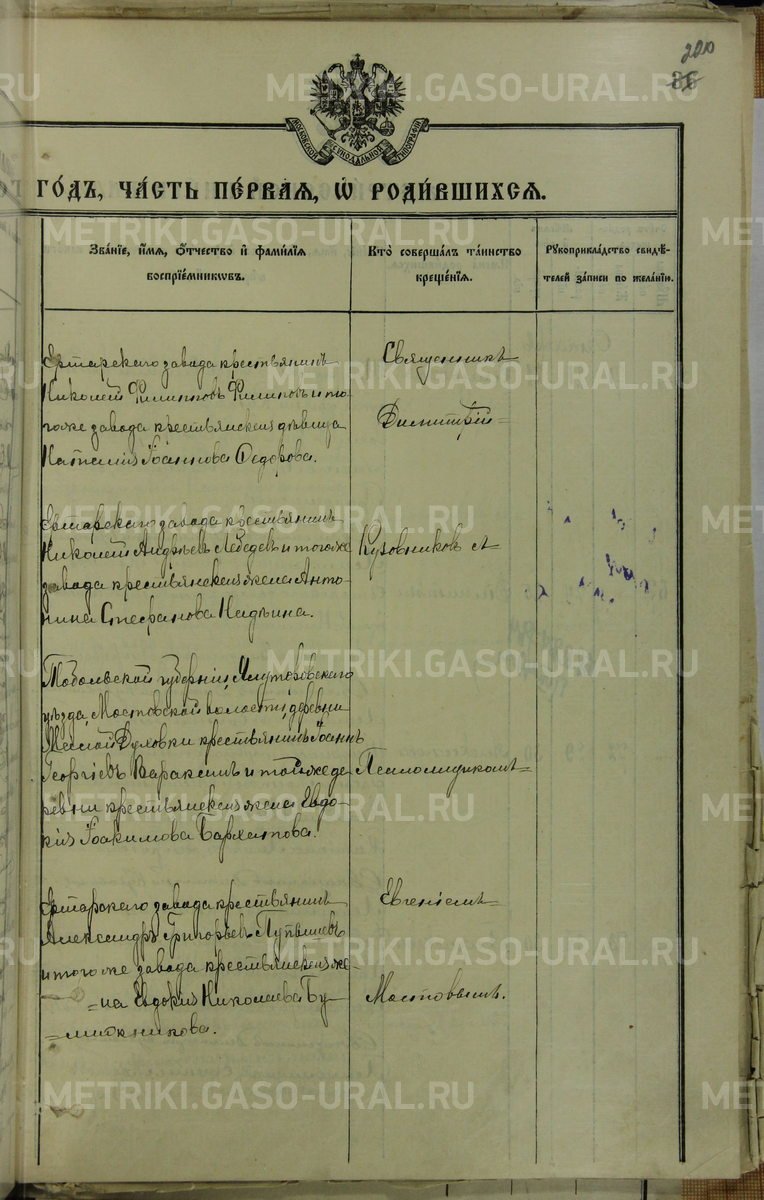 200
METRIKI.GASO-URAL.RU
МОСКОВСКОЙ СѴНОДАЛЬНОЙ ТИПОГРАФІИ
ГО́ДЪ, ЧА́СТЬ ПЕ́РВАЯ, Ѡ РОДИ́ВШИХСЯ.
Зва́нїе, и́мя, о́тчество и фами́лїя
воспрїе́мниковъ.
Кто̀ соверша́лъ та́инство
креще́нїя.
Рукоприкла́дство свидѣ́-
телей за́писи по жела́нїю.
Ертарскаго завода крестьянинъ
Николай Филипповъ Филиповъ и то-
гоже завода крестьянская дѣвица
Наталія Іоаннова Федорова.
Священникъ
Димитрій=
Ертарскаго завода крестьянинъ
Николай Андреевъ Лебедевъ и тогоже
завода крестьянская жена Анто-
нина Стефанова
Кузовниковъ
Тобольской губерніи, Ялуторовскаго
уѣзда, Мостовской волости, деревни
Малой Духовки крестьянинъ Іоаннъ
Георгіевъ Вараксинъ и тойже де
ревни крестьянская жена Евдо-
кія Іоакимова Бархатова.
Псаломщикомъ=
Ертарскаго завода крестьянинъ
Александръ Григорьевъ Пупышевъ
и того же завода крестьянская же-
=на Евдокія Николаева Бу-
=мажникова.
Евгеніемъ=
Мостовымъ.